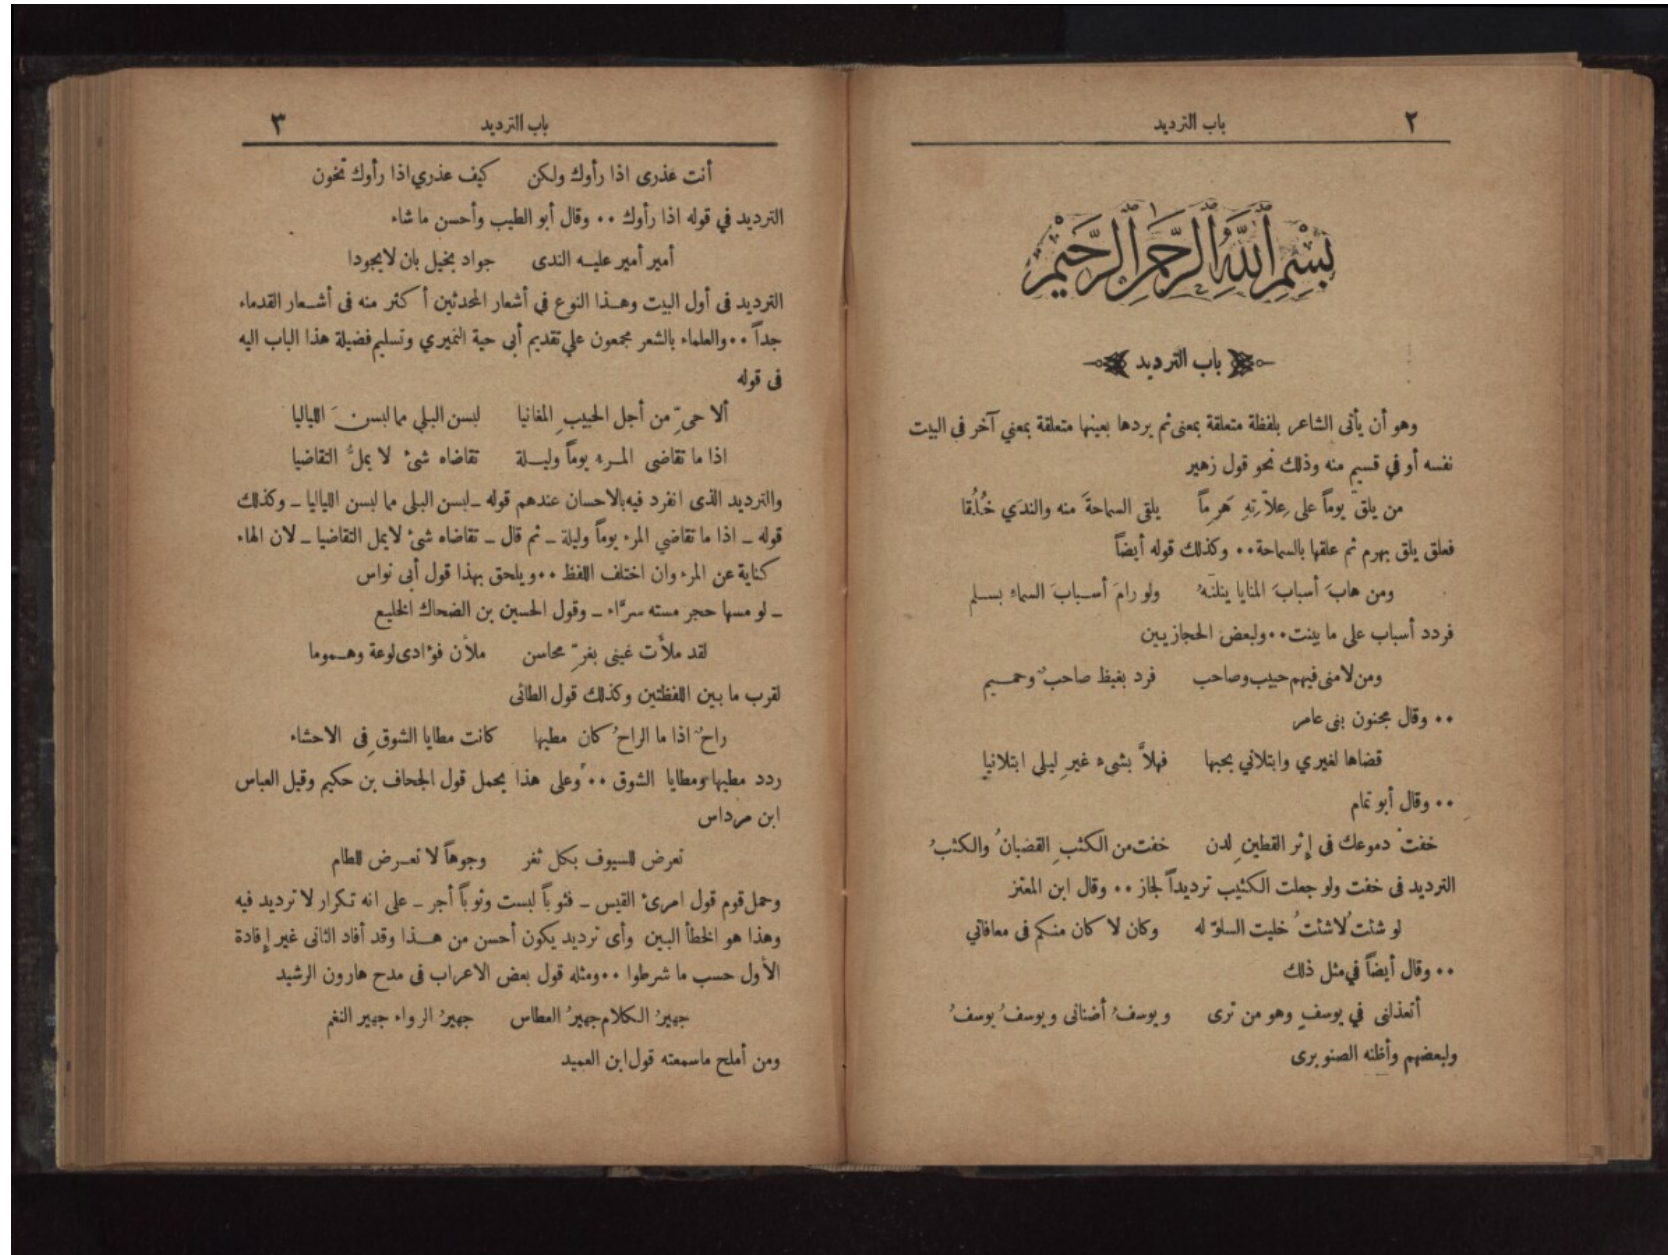 ٢
باب الترديد
بسم الله الرحمن الرحيم
باب الترديد
وهو أن يأتى الشاعر بلفظة متعلقة بمعنى ثم يردها بعينها متعلقة بمعني آخر في البيت
نفسه أو في قسيم منه وذلك نحو قول زهير
من يلق يوماً على عِلاّتِهِ هَرِماً يلقى السماحةَ منه والندَي خُلُقا
فعلق يلق بهرم ثم علقها بالسماحة ٠٠ وكذلك قوله أيضاً
ومن هابَ أسبابَ المنايا ينلنَهُ ولو رامَ أسبابَ السماءِ بسلم
فردد أسباب على ما بينت ٠٠ ولبعض الحجازيين
ومن لامنى فيهم حبيب وصاحب فرد بغيظ صاحبٌ وحميم
٠٠ وقال مجنون بنى عامر
قضاها لغيري وابتلاني بحبها فهلاَّ بشىء غيرِ ليلى ابتلانيا
٠٠ وقال أبو تمام
خفت دموعك فى إثر القطينِ لدن خفت من الكثبِ القضبانُ والكثبُ
الترديد فى خفت ولو جعلت الكثيب ترديداً لجاز ٠٠ وقال ابن المعتز
لو شئتُ لاشئتُ خليت السلوّ له وكان لا كان منكم فى معافاتي
٠٠ وقال أيضاً في مثل ذلك
أتعذلنى في يوسفٍ وهو من ترى ويوسفُ أضنانى ويوسفُ يوسفُ
ولبعضهم وأظنه الصنوبرى
٣
باب الترديد
أنت عذرى اذا رأوك ولكن كيف عذري اذا رأوك تخون
الترديد في قوله اذا رأوك ٠٠ وقال أبو الطيب وأحسن ما شاء
أمير أمير عليه الندى جواد بخيل بان لايجودا
الترديد فى أول البيت وهذا النوع في أشعار المحدثين أكثر منه فى أشعار القدماء
جداً ٠٠ والعلماء بالشعر مجمعون علي تقديم أبى حية النميري وتسليم فضيلة هذا الباب اليه
فى قوله
ألا حىِّ من أجل الحبيبِ المغانيا لبسن البلي مما لبسن اللياليا
اذا ما تقاضى المرء يوماً وليلة تقاضاه شئ لا يملُّ التقاضيا
والترديد الذى انفرد فيه بالاحسان عندهم قوله ـ لبسن البلى مما لبسن اللياليا ـ وكذلك
قوله ـ اذا ما تقاضي المرء يوماً وليلة ـ ثم قال ـ تقاضاه شئ لايمل التقاضيا ـ لان الهاء
كناية عن المرء وان اختلف اللفظ ٠٠ ويلحق بهذا قول أبى نواس
ـ لو مسها حجر مسته سرّاء ـ وقول الحسين بن الضحاك الخليع
لقد ملأت عينى بغرِّ محاسن ملأن فؤادى لوعة وهموما
لقرب ما بين اللفظتين وكذلك قول الطائى
راحٌ اذا ما الراحُ كان مطيها كانت مطايا الشوقِ فى الاحشاء
ردد مطيها ومطايا الشوق ٠٠ وعلى هذا يحمل قول الجحاف بن حكيم وقيل العباس
ابن مرداس
تعرض للسيوف بكل ثغر وجوهاً لا تعرض للطام
وحمل قوم قول امرئ القيس ـ فثوباً لبست وثوباً أجر ـ على انه تكرار لا ترديد فيه
وهذا هو الخطأ البين وأى ترديد يكون أحسن من هذا وقد أفاد الثانى غير إفادة
الأول حسب ما شرطوا ٠٠ ومثله قول بعض الاعراب فى مدح هارون الرشيد
جهيرُ الكلام جهيرُ العطاس جهيرُ الرواء جهير النغم
ومن أملح ماسمعته قول ابن العميد